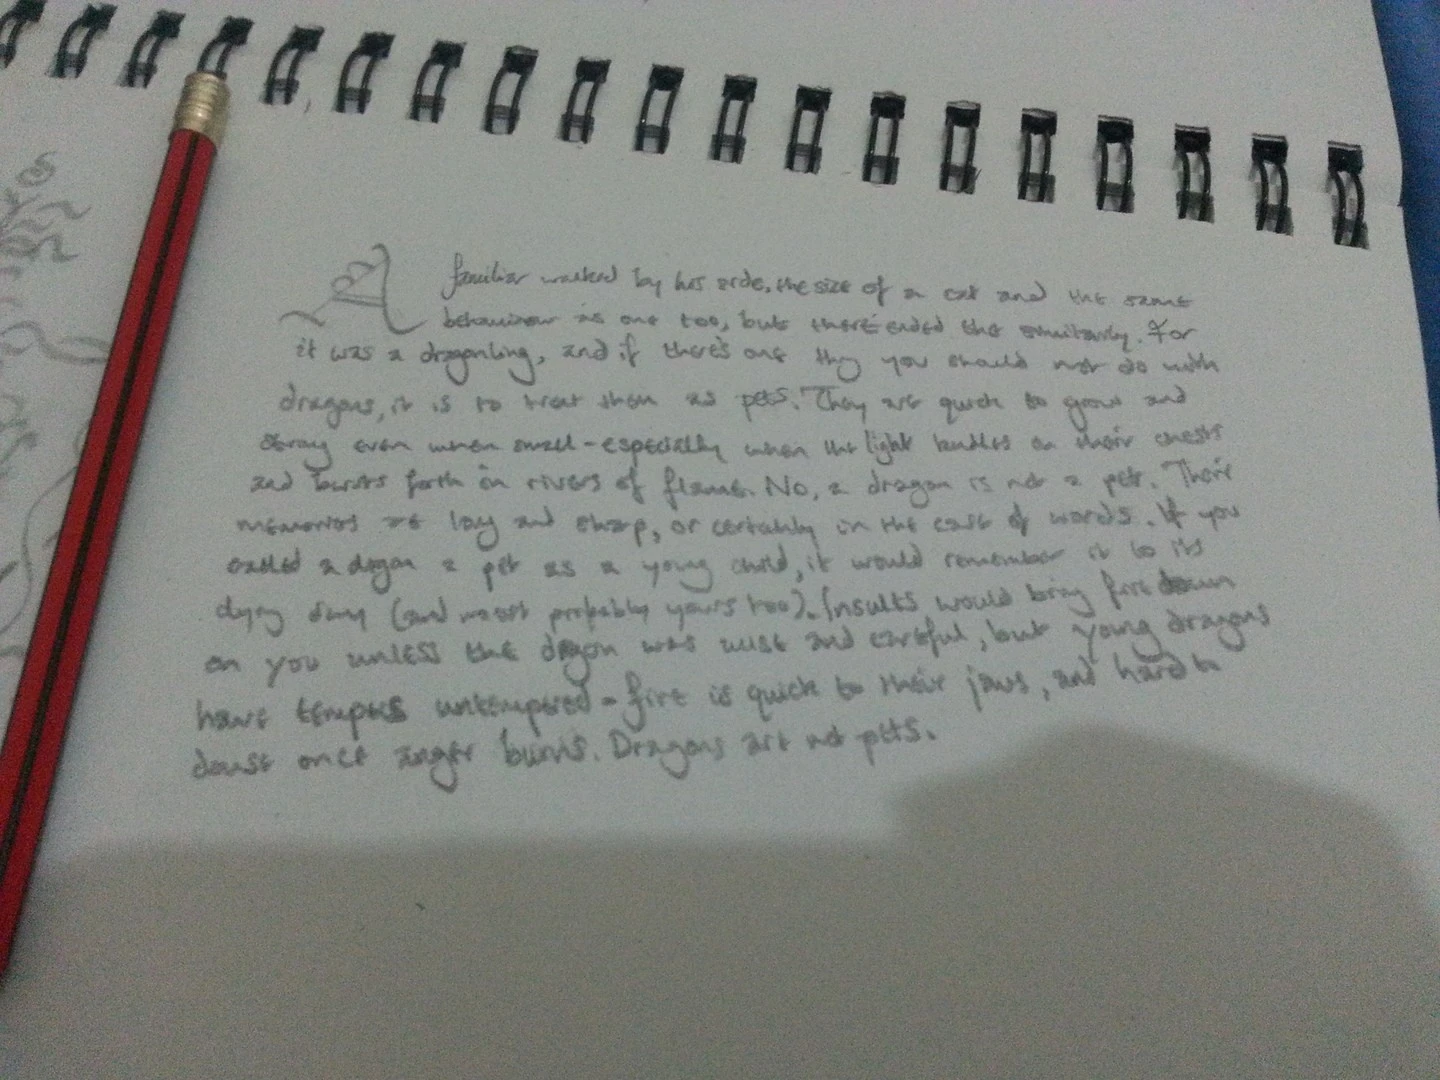 A familiar walked by his side, the size of a cat and the same
behaviour as one too, but there ended the similarity. For
it was a dragonling, and if there's one thing you should not do with
dragons, it is to treat them as pets. They are quick to grow and
strong even when small - especially when the light kindles in their chests
and bursts forth in rivers of flame. No, a dragon is not a pet. Their
memories are long and sharp, or certainly in the case of words. If you
called a dragon a pet as a young child, it would remember it to its
dying day (and most probably yours too). Insults would bring fire down
on you unless the dragon was wise and careful, but young dragons
have tempers untempered - fire is quick to their jaws, and hard to
douse once anger burns. Dragons are not pets.